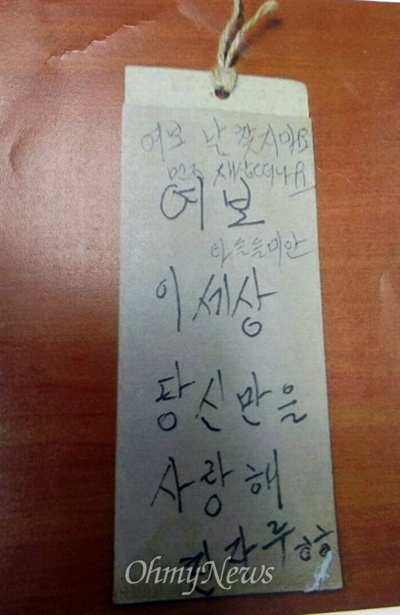 여보 날 찾지마요
먼저 세상떠나요
여보
아들들미안
이세상
당신만을
사랑해
OhmyNews